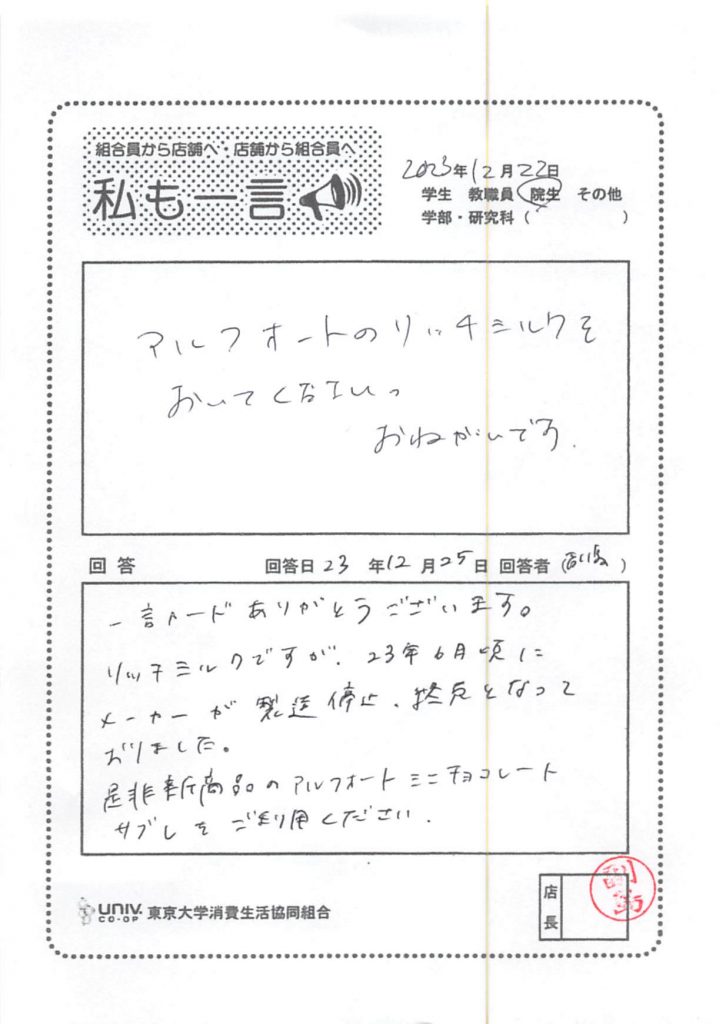 組合員から店舗へ 店舗から組合員へ
私も一言
2023年12月22日
学生 教職員 院生 その他
学部・研究科( )
アルフォートのリッチミルクを
おいてください。
おねがいです.
回答 回答日 23 年12月25日 回答者( )
一言カードありがとうございます。
リッチミルクですが、23年6月頃に
メーカーが製造停止、終売となって
おりました。
是非新商品のアルフォートミニチョコレート
サブレをご利用ください.
UNIV. CO-OP 東京大学消費生活協同組合
店長